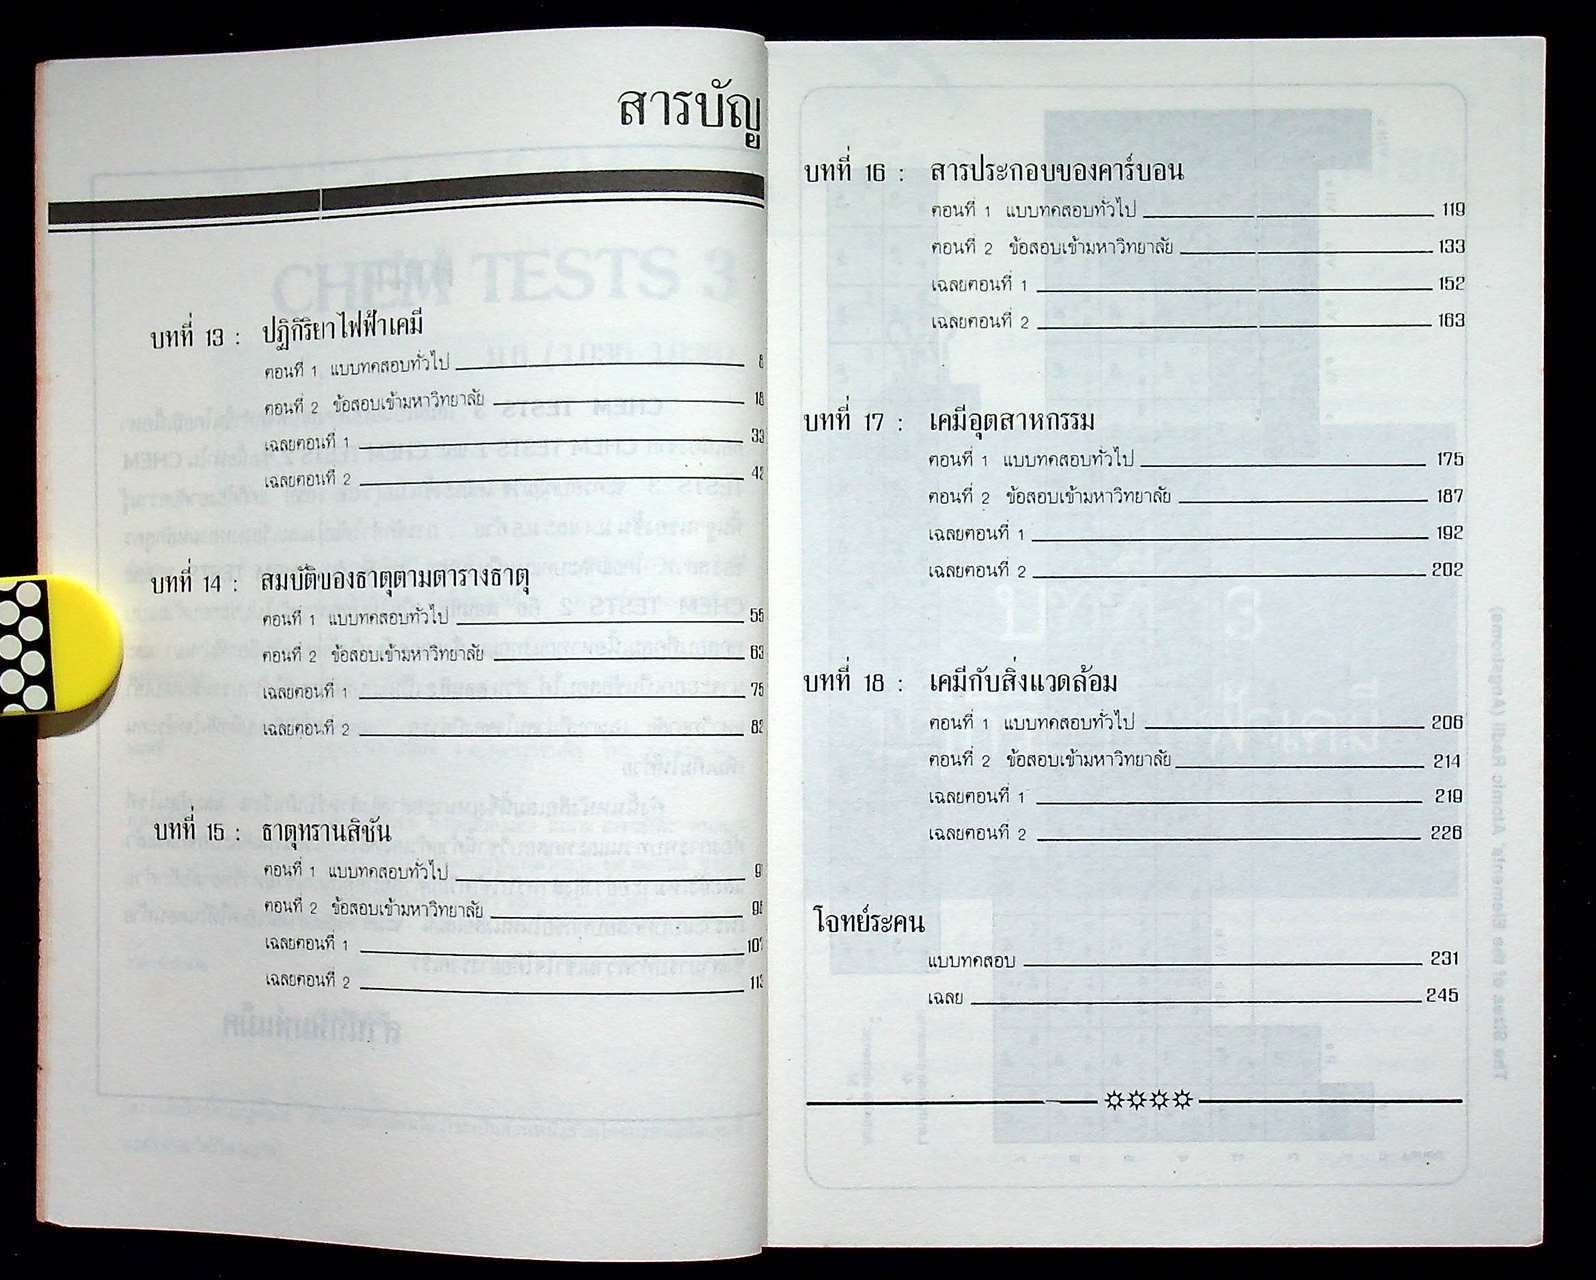 สารบัญ
บทที่ 13 : ปฏิกิริยาไฟฟ้าเคมี
ตอนที่ 1 แบบทดสอบทั่วไป
ตอนที่ 2 ข้อสอบเข้ามหาวิทยาลัย
เฉลยตอนที่ 1 33
เฉลยตอนที่ 2
บทที่ 14 : สมบัติของธาตุตามตารางธาตุ
ตอนที่ 1 แบบทดสอบทั่วไป 55
ตอนที่ 2 ข้อสอบเข้ามหาวิทยาลัย 63
เฉลยตอนที่ 1 75
เฉลยตอนที่ 2 82
บทที่ 15 : ธาตุทรานสิชัน
ตอนที่ 1 แบบทดสอบทั่วไป
ตอนที่ 2 ข้อสอบเข้ามหาวิทยาลัย
เฉลยตอนที่ 1
เฉลยตอนที่ 2
บทที่ 16 : สารประกอบของคาร์บอน
ตอนที่ 1 แบบทดสอบทั่วไป 119
ตอนที่ 2 ข้อสอบเข้ามหาวิทยาลัย 133
เฉลยตอนที่ 1 152
เฉลยตอนที่ 2 163
บทที่ 17 : เคมีอุตสาหกรรม
ตอนที่ 1 แบบทดสอบทั่วไป 175
ตอนที่ 2 ข้อสอบเข้ามหาวิทยาลัย 187
เฉลยตอนที่ 1 192
เฉลยตอนที่ 2 202
บทที่ 18 : เคมีกับสิ่งแวดล้อม
ตอนที่ 1 แบบทดสอบทั่วไป 206
ตอนที่ 2 ข้อสอบเข้ามหาวิทยาลัย 214
เฉลยตอนที่ 1 219
เฉลยตอนที่ 2 226
โจทย์ระคน
แบบทดสอบ 231
เฉลย 245